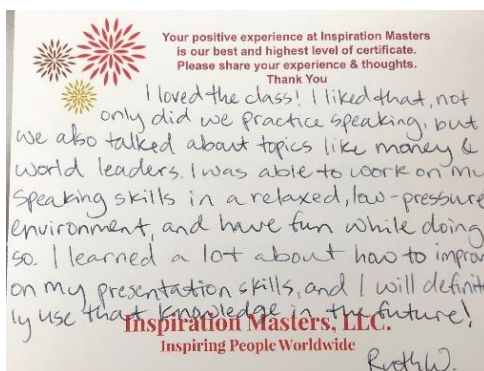 Your positive experience at Inspiration Masters
is our best and highest level of certificate.
Please share your experience & thoughts.
Thank You
I loved the class! I liked that, not
only did we practice speaking, but
we also talked about topics like money &
world leaders. I was able to work on my
speaking skills in a relaxed, low-pressure
environment, and have fun while doing
so. I learned a lot about how to improv
on my presentation skills, and I will definit
ly use that knowledge in the future!
Inspiration Masters, LLC.
Inspiring People Worldwide
Ruth W.